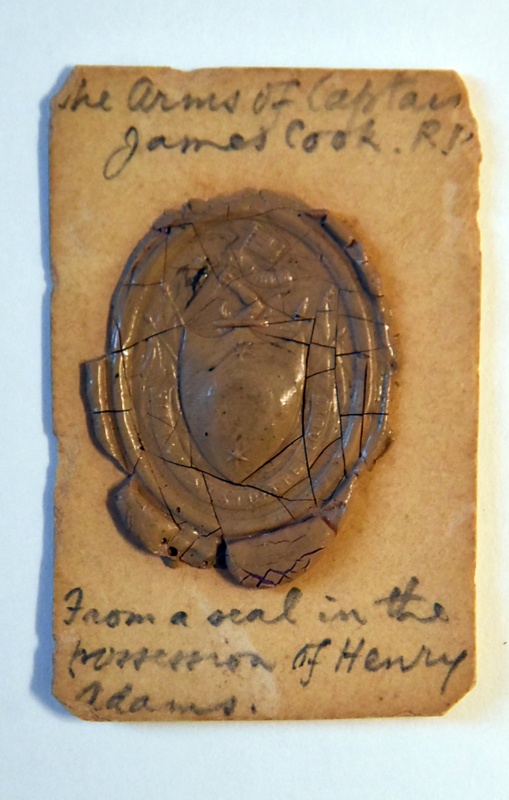 The Arms of Captain
James Cook. R.N.
From a seal in the
possession of Henry
Adams.